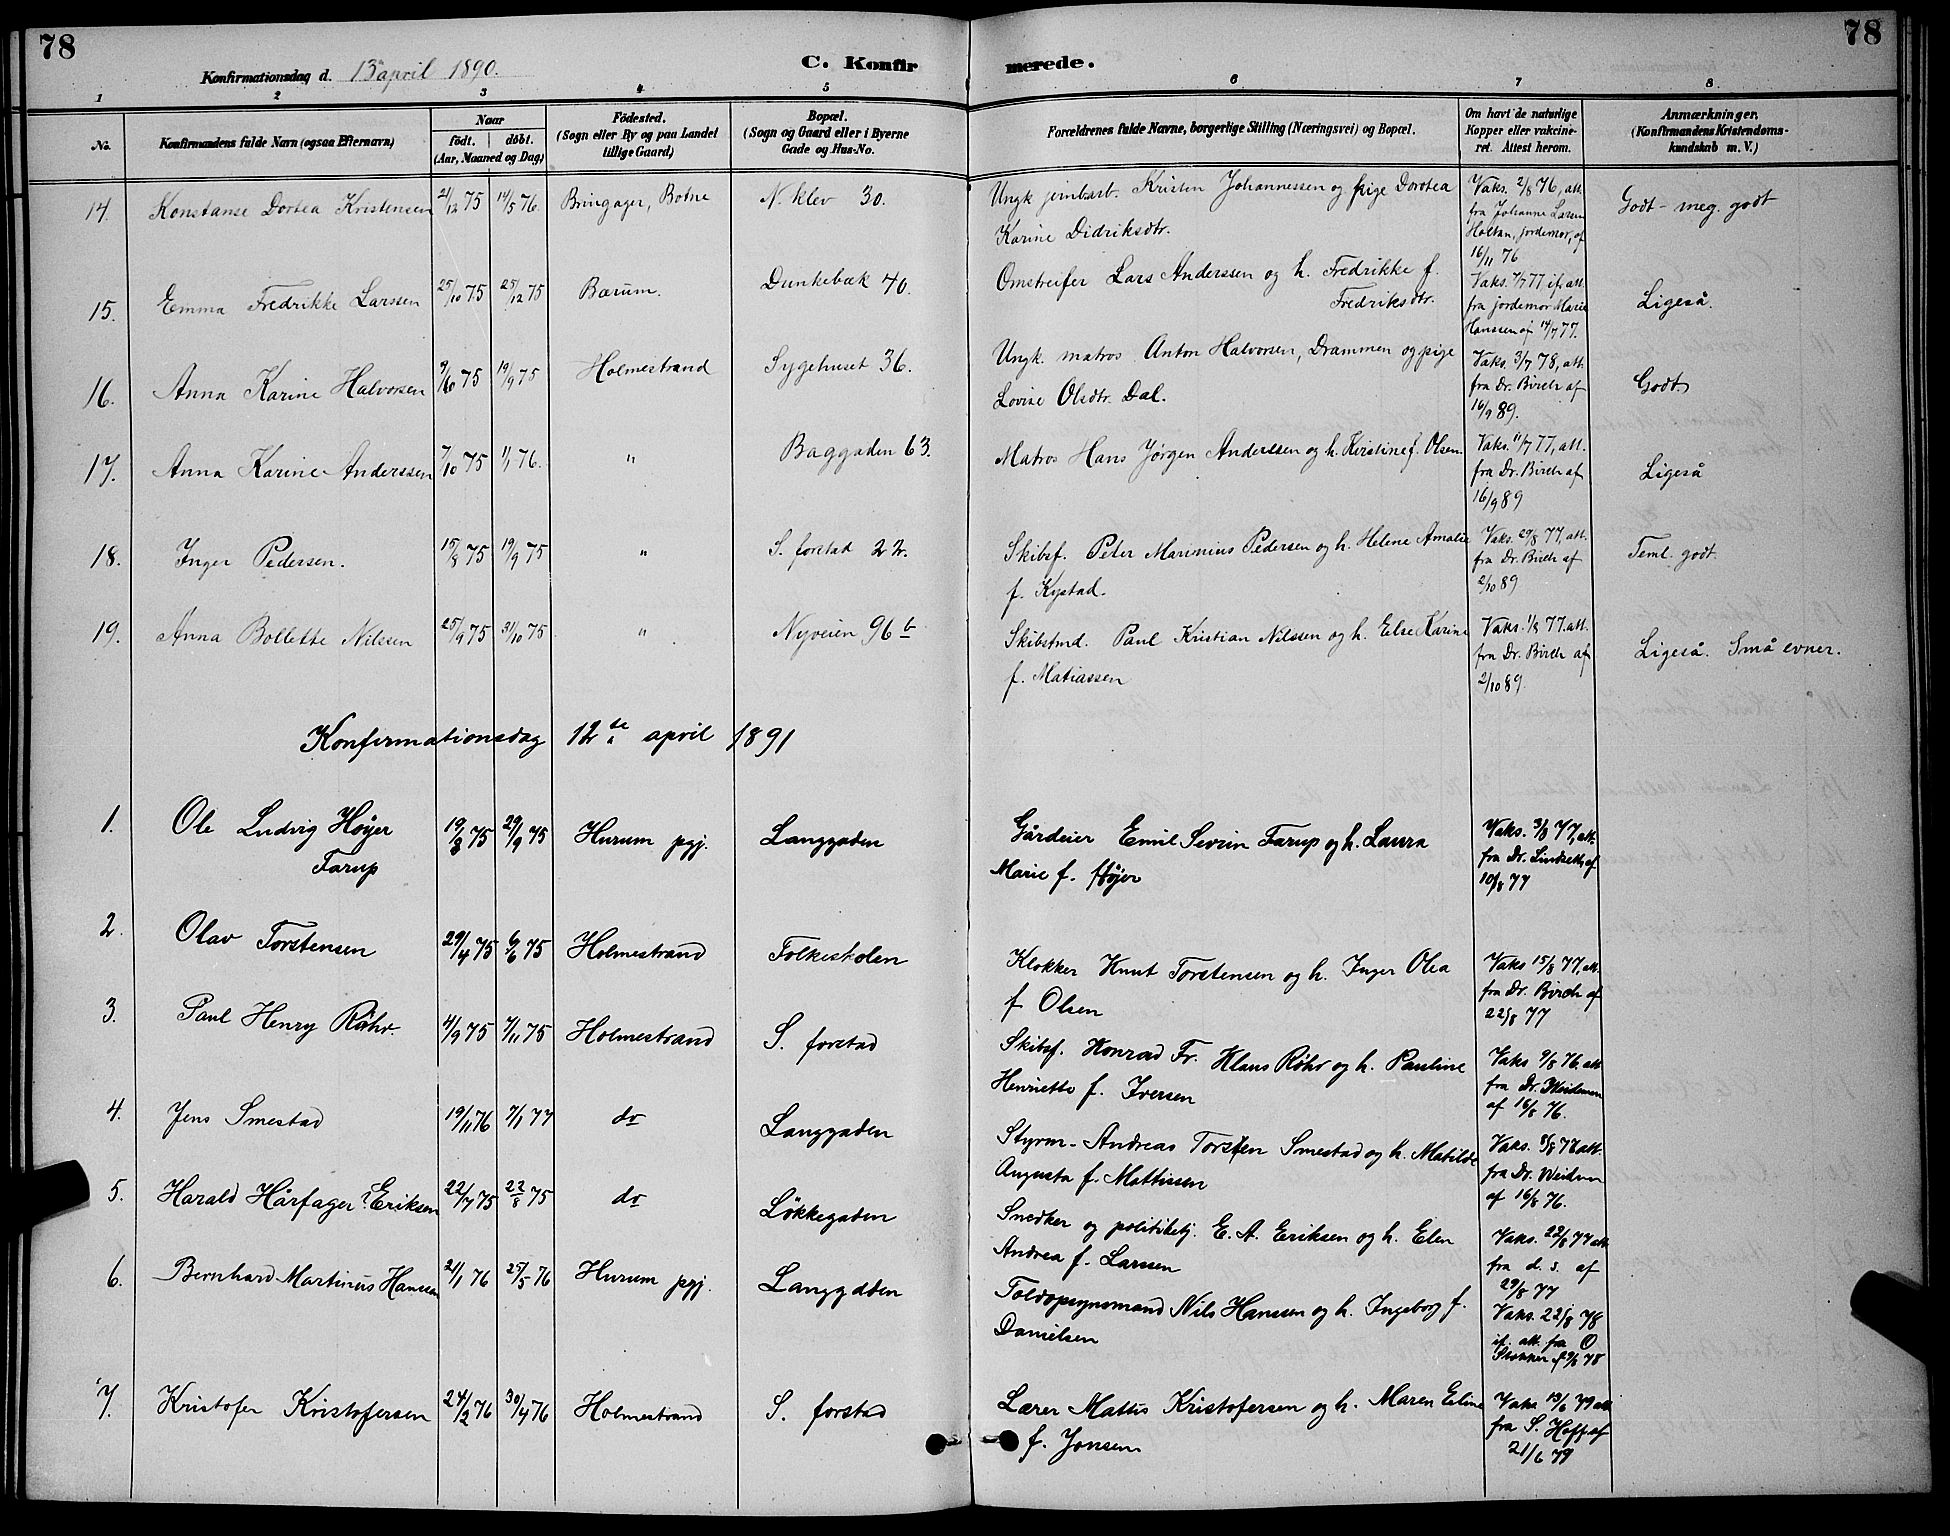 78
78
Konfirmationsdag d. 13de april 1890.
C. Konfir
merede.
1 2 3 4 5 6 7 8
No.
Konfirmandens fulde Navn (ogsaa Efternavn)
Naar
født. døbt.
(Aar, Maaned og Dag)
Fødested.
(Sogn eller By og paa Landet
tillige Gaard)
Bopæl.
(Sogn og Gaard eller i Byerne
Gade og Hus-No.
Forældrenes fulde Navne, borgerlige Stilling (Næringsvei) og Bopæl.
Om havt de naturlige
Kopper eller vakcine-
ret. Attest herom.
Anmærkninger.
(Konfirmandens Kristendoms-
kundskab m. V.)
14. Konstanse Dortea Kristensen 21/12 75 14/5 76. Bringager, Botne N. klev 30. Ungk. jernbarb. Kristen Johannessen og pige Dorotea
Karine Didriksdtr.
Vaks. 2/8 76, att.
fra Johanne Larsen
Holtan, jordemor, af
16/11 76
Godt - meg. godt
15. Emma Fredrikke Larssen 25/10 75 25/12 75 Bærum. Dunkebæk 40. Omstreifer Lars Anderssen og h. Fredrikke f.
Fredriksdtr.
Vaks. 7/7 77 if. att.
fra jordemor Marie
Hanssen af 14/7 77.
Ligeså.
16. Anna Karine Halvorsen 9/10 75 19/9 75 Holmestrand Sygehuset 36. Ungk. matros Anton Halvorsen, Drammen og pige
Lovise Olsdtr. Dal.
Vaks. 3/7 78, att.
fra Dr. Birch af
16/9 89.
Godt
17. Anna Karine Anderssen 7/10 75 1/1 76. " Baggaden 63. Matros Hans Jørgen Anderssen og h. Kirstine f. Olsen.
Vaks. 11/7 77, att.
fra Dr. Birch af
16/9 89
Ligeså
18. Inger Pedersen. 15/8 75 19/9 75 " S. forstad 22. Skibsf. Peter Marinius Pedersen og h. Helene Amalie
f. Kystad.
Vaks. 29/8 77, att.
fra Dr. Birch af
2/10 89
Teml. godt.
19. Anna Bollette Nilssen 25/9 75 31/10 75 " Nyveien 96 b Skibstmd. Paul Kristian Nilssen og h. Else Karine
f. Matiassen
Vaks. 1/8 77. att.
fra Dr. Birch af
2/10 89.
Ligeså. Små evner.
Konfirmationsdag 12te april 1891
1. Ole Ludvig Høyer
Farup
19/8 75 29/9 75 Hurum pgj. Langgaden Gårdeier Emil Severin Farup og h. Laura
Marie f. Høyer
Vaks. 3/8 77, att.
fra Dr. Lindseth af
10/8 77
2. Olav Torstensen 29/4 75 6/6 75 Holmestrand Folkeskolen Klokker Knut Torstensen og h. Inger Olea
f Olsen
Vaks 15/8 77, att.
fra Dr. Birch af
22/8 77
3. Paul Henry Røhr. 4/9 75 7/11 75 Holmestrand S. forstad Skibsf. Konrad Fr. Klaus Røhr og h. Pauline
Henriette f. Iversen
Vaks 9/8 76. att
fra Dr. Weideman
af 16/8 76.
4. Jens Smestad 19/11 76 7/1 77 do Langgaden Styrm. Andreas Torsten Smestad og h. Matilde
Augusta f. Mattissen
Vaks. 8/8 77 att.
fra Dr. Weidem
af 16/8 76.
5. Harald Hårfager Eriksen 22/7 75 22/8 75 do Løkkegaden Snedker og politibetj. E. A. Eriksen og h. Elen
Andrea f. Larssen
Vaks. 22/8 77 att
fra d. s. af
29/8 77
6. Bernhard Martinus Hanssen 21/1 76 25/5 76 Hurum pgj. Langgaden Toldopsynsmand Nils Hanssen og h. Ingeborg f.
Danielsen
Vaks. 22/8 78
if. att. fra O
29/8 78
7. Kristofer Kristofersen 24/2 76 30/4 76 Holmestrand S. forstad Lærer Mattis Kristofersen og h. Maren Eline
f. Jonsen
Vaks 13/6 79 att
fra S. Hoff af
21/6 79